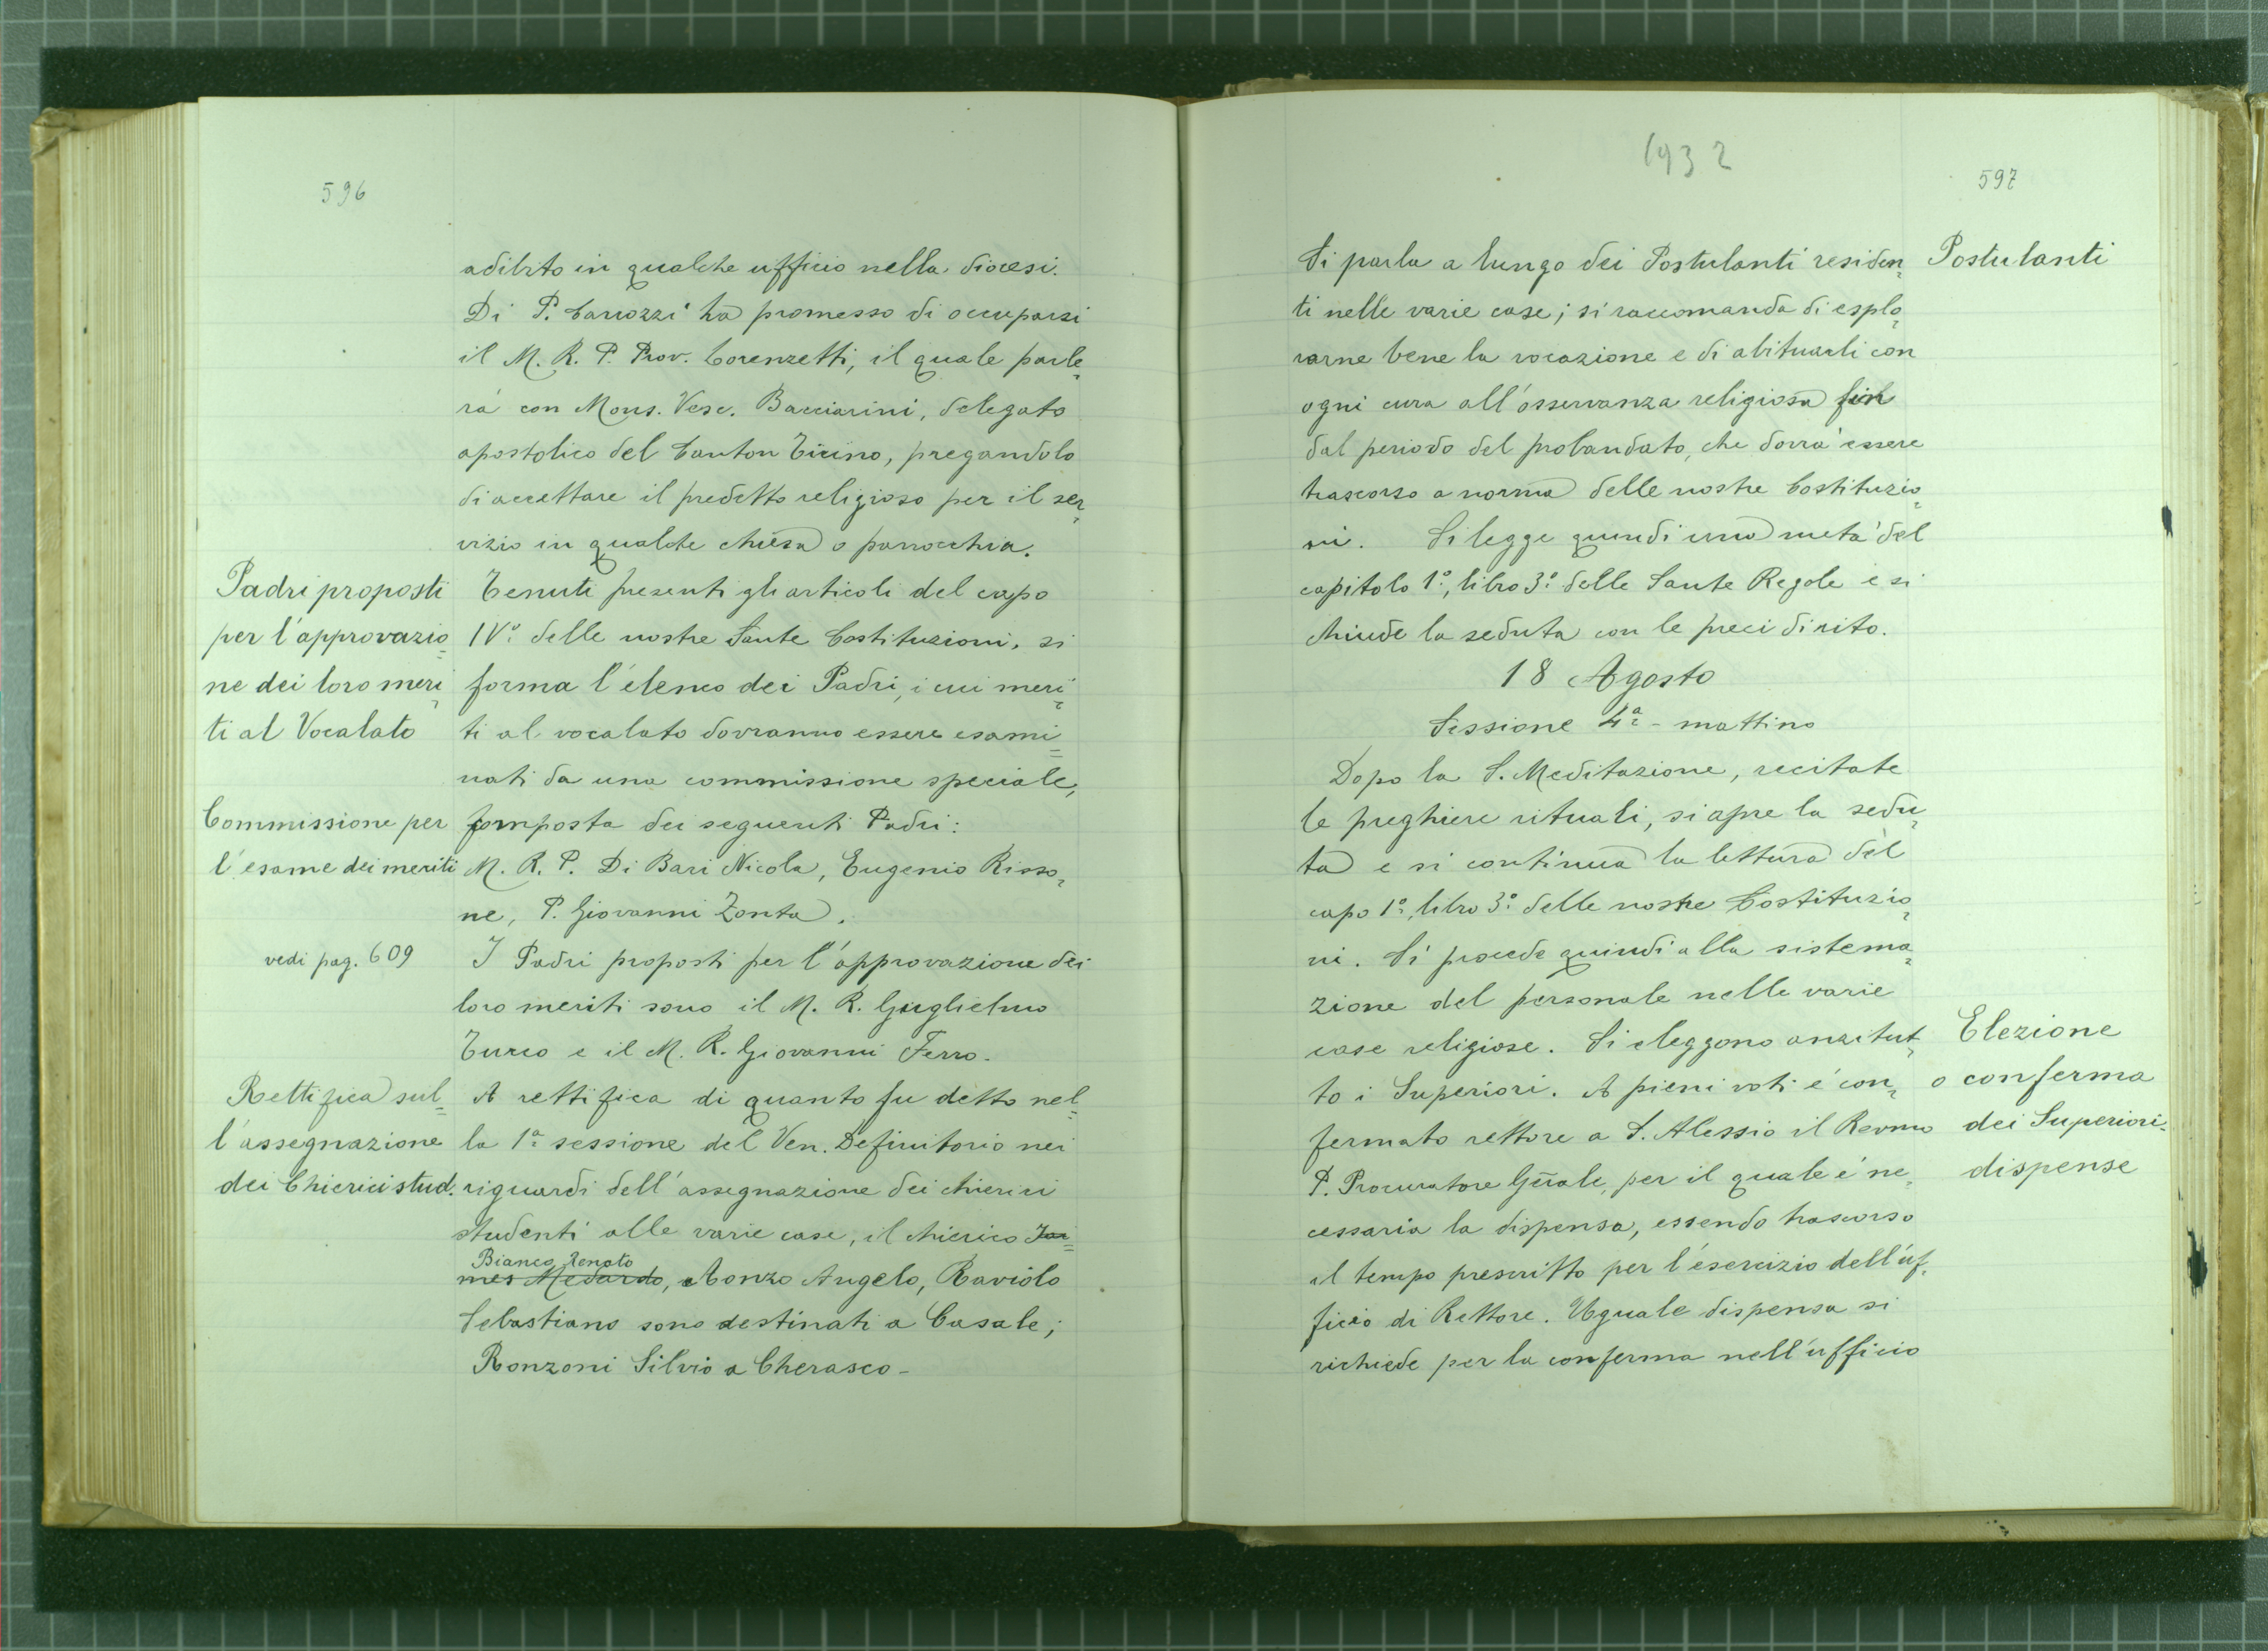 596
adibito in qualche ufficio nella diocesi.
Di P. Carrozzi ha promesso di occuparsi
il M. R. P. Prov. Lorenzetti, il quale parle=
rà con Mons. Vesc. Bacciarini, delegato
apostolico del Canton Ticino, pregandolo
di accettare il predetto religioso per il ser=
vizio in qualche chiesa o parrocchia.
Padri proposti
per l'approvazio=
ne dei loro meri=
ti al Vocalato
Tenuti presenti gli articoli del capo
IV° delle nostre Sante Costituzioni, si
forma l'elenco dei Padri, i cui meri=
ti al vocalato dovranno essere esami=
nati da una commissione speciale,
Commissione per
l'esame dei meriti
composta dei seguenti Padri:
M. R. P. Di Bari Nicola, Eugenio Risso=
ne, P. Giovanni Zonta.
vedi pag. 609
I Padri proposti per l'approvazione dei
loro meriti sono il M. R. Guglielmo
Turco e il M. R. Giovanni Ferro.
Rettifica sul=
l'assegnazione
dei Chierici stud.
A rettifica di quanto fu detto nel=
la 1ª sessione del Ven. Definitorio nei
riguardi dell'assegnazione dei chierici
studenti alle varie case, il chierico
Bianco Renato
Medardo, Aonzo Angelo, Raviolo
Sebastiano sono destinati a Casale;
Ronzoni Silvio a Cherasco-
1932
597
Postulanti
Si parla a lungo dei Postulanti residen=
ti nelle varie case; si raccomanda di esplo=
rarne bene la vocazione e di abituarli con
ogni cura all'osservanza religiosa fin
dal periodo del probandato, che dovrà essere
trascorso a norma delle nostre Costituzio=
ni. Si legge quindi una metà del
capitolo 1°, libro 3° delle Sante Regole e si
chiude la seduta con le preci di rito.
18 Agosto
Sessione 4ª - mattino
Dopo la S. Meditazione, recitate
le preghiere rituali, si apre la sedu=
ta e si continua la lettura del
capo 1°, libro 3° delle nostre Costituzio=
ni. Si procede quindi alla sistema=
zione del personale nelle varie
case religiose. Si eleggono anzitut=
to i Superiori. A pieni voti è con=
fermato rettore a S. Alessio il Revmo
P. Procuratore Gñrale, per il quale è ne=
cessaria la dispensa, essendo trascorso
il tempo prescritto per l'esercizio dell'uf=
ficio di Rettore. Uguale dispensa si
richiede per la conferma nell'ufficio
Elezione
o conferma
dei Superiori-
dispense